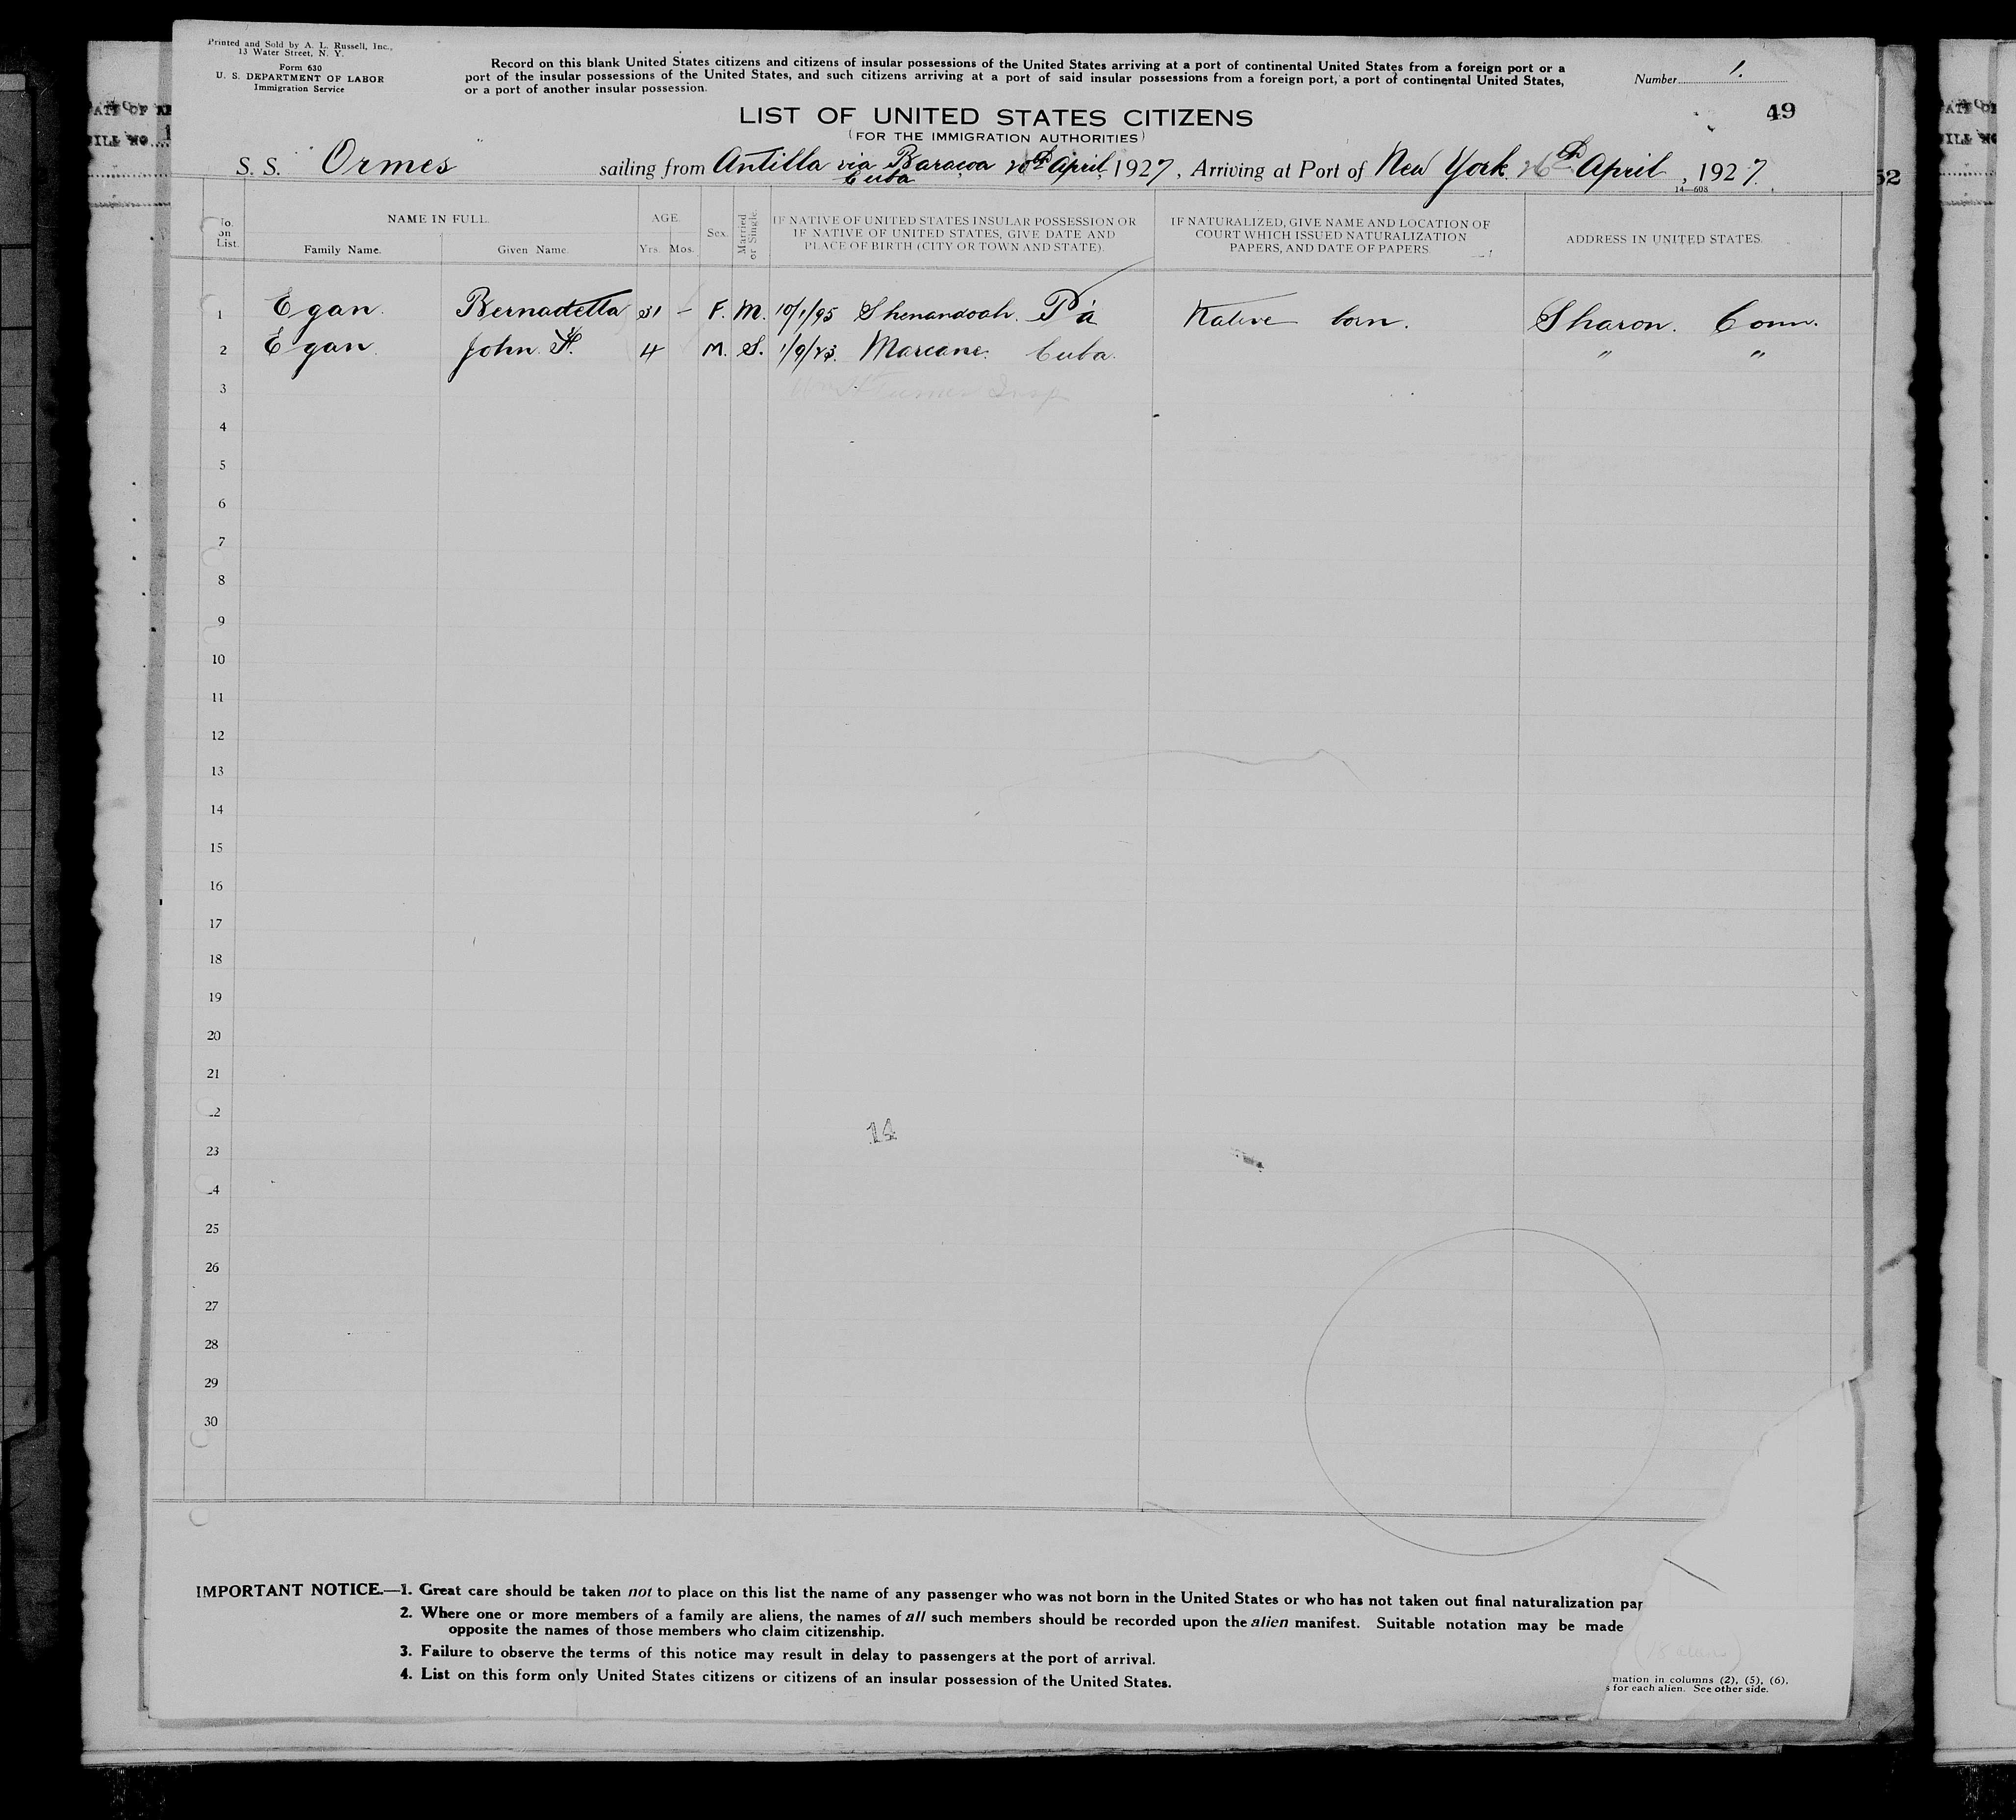 Printed and Sold by A. L. Russell, Inc.,
13 Water Street, N. Y.
Form 630
U. S. DEPARTMENT OF LABOR
Immigration Service
Record on this blank United States citizens and citizens of insular possessions of the United States arriving at a port of continental United States from a foreign port or a
port of the insular possessions of the United States, and such citizens arriving at a port of said insular possessions from a foreign port, a port of continental United States,
or a port of another insular possession.
Number 1.
49
LIST OF UNITED STATES CITIZENS
(FOR THE IMMIGRATION AUTHORITIES)
S. S. Ormes sailing from Antilla via Baracoa 20th April, 1927, Arriving at Port of New York 26th April, 1927.
Cuba
14—608
52
No. on List.
NAME IN FULL.
Family Name.
Given Name.
AGE.
Yrs. Mos.
Sex.
Married or Single.
IF NATIVE OF UNITED STATES INSULAR POSSESSION OR
IF NATIVE OF UNITED STATES, GIVE DATE AND
PLACE OF BIRTH (CITY OR TOWN AND STATE).
IF NATURALIZED, GIVE NAME AND LOCATION OF
COURT WHICH ISSUED NATURALIZATION
PAPERS, AND DATE OF PAPERS.
ADDRESS IN UNITED STATES.
1 Egan. Bernadetta 31 - F. M. 10/1/95 Shenandoah. Pa Native born. Sharon. Conn.
2 Egan John F. 4 M. S. 1/9/23. Marcane. Cuba. " "
3
4
5
6
7
8
9
10
11
12
13
14
15
16
17
18
19
20
21
22
14
23
24
25
26
27
28
29
30
IMPORTANT NOTICE.—1. Great care should be taken not to place on this list the name of any passenger who was not born in the United States or who has not taken out final naturalization pap
2. Where one or more members of a family are aliens, the names of all such members should be recorded upon the alien manifest. Suitable notation may be made
opposite the names of those members who claim citizenship.
3. Failure to observe the terms of this notice may result in delay to passengers at the port of arrival.
4. List on this form only United States citizens or citizens of an insular possession of the United States.
mation in columns (2), (5), (6),
s for each alien. See other side.